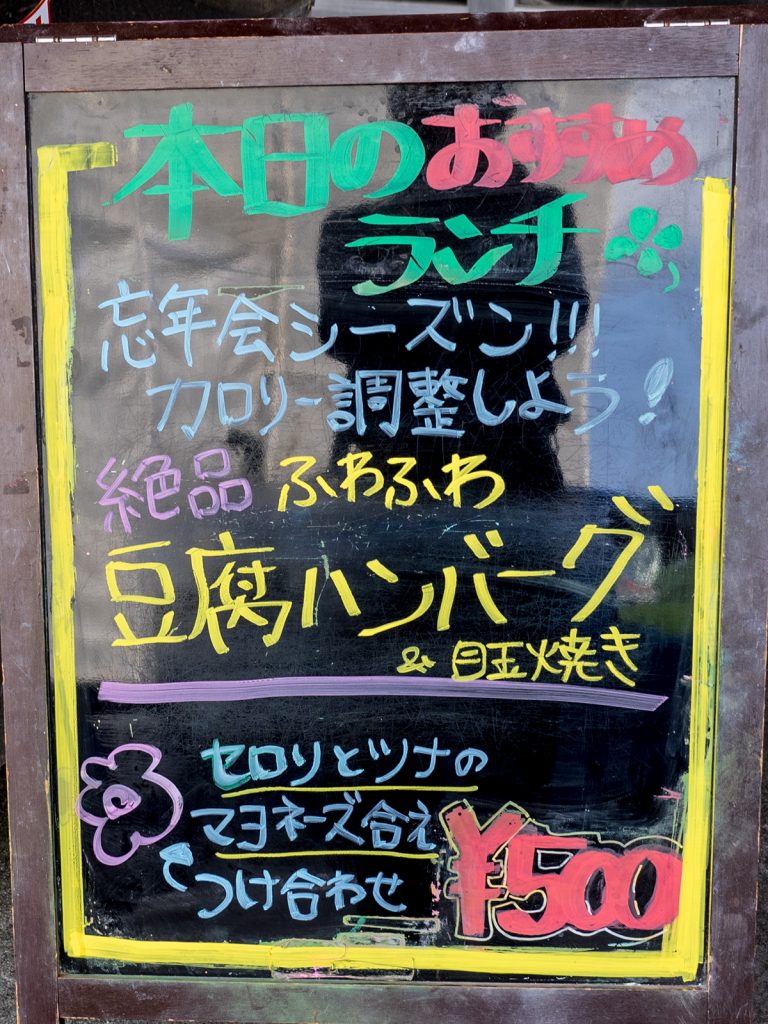 本日のおすすめ
ランチ
忘年会シーズン!!!
カロリー調整しよう!
絶品 ふわふわ
豆腐ハンバーグ
& 目玉焼き
セロリとツナの
マヨネーズ合え
つけ合わせ
¥500